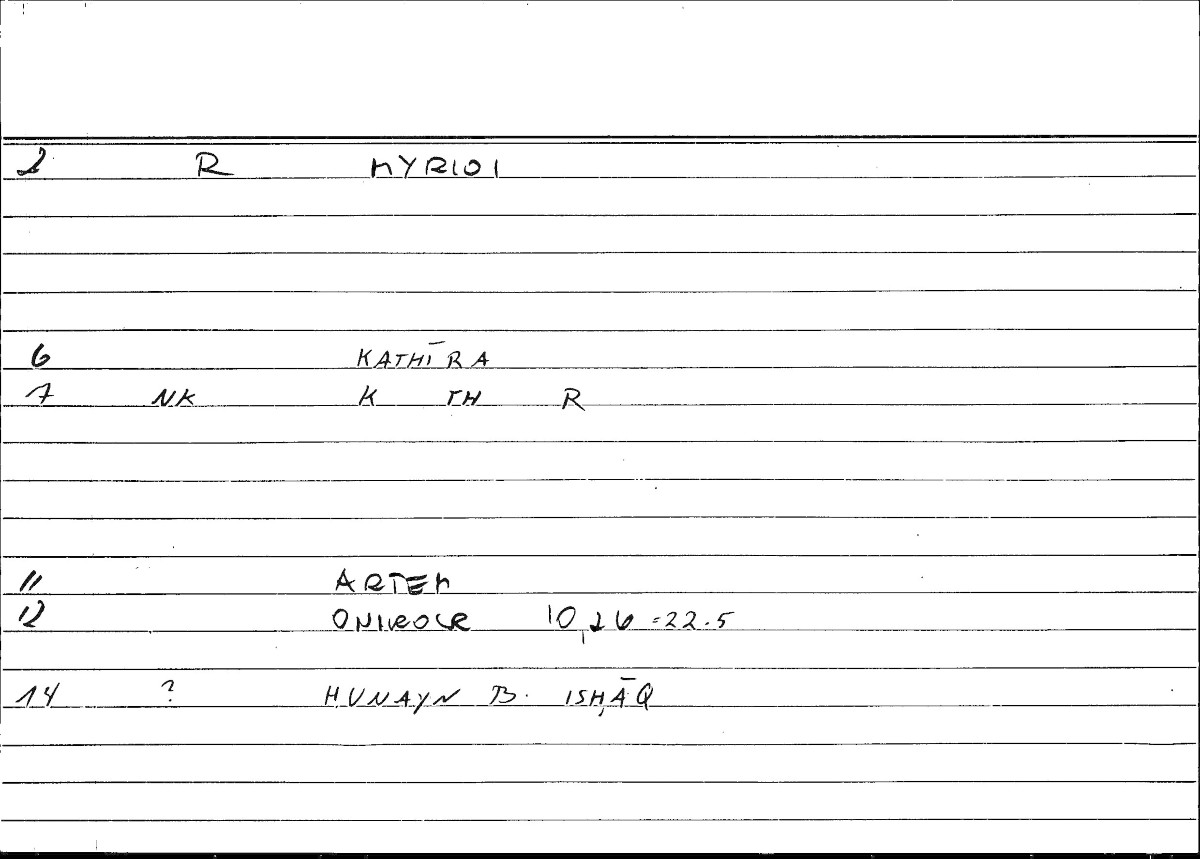 2 R MYRIOI
6 KATHĪRA
7 NK K TH R
11 ARTEM
12 ONIROCR 10,26 = 22.5
14 ? HUNAYN B. ISḤĀQ